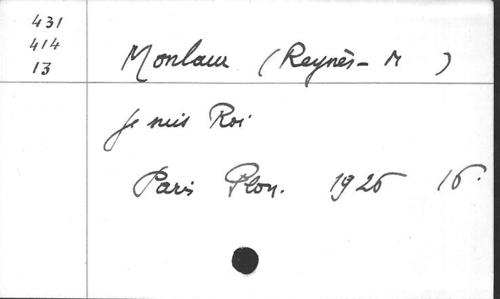 431
414
13
Monlaur (Reynès - M )
Je suis Roi
Paris Plon. 1926 16.